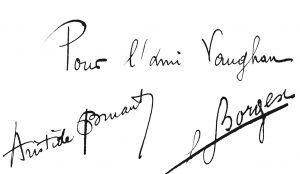 Pour l'ami Vaughan
Aristide Bruant
Borges